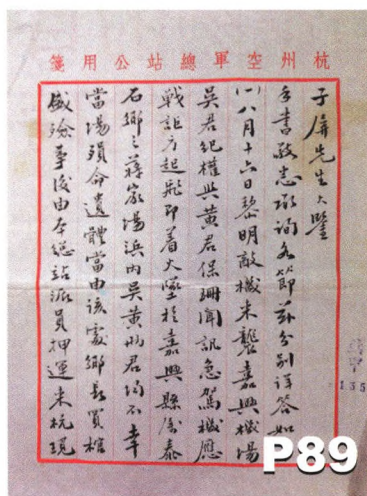 杭州空軍總站公用箋
子屏先生大鑒
手書敬悉承詢各節茲分別詳答如
(一)八月十六日黎明敵機来襲嘉興機場
吳君紀權與黃君保珊聞訊急駕機應
戰詎方起飛即着火墜於嘉興縣屬泰
石鄉之蔣家場浜內吳黃兩君均不幸
當場殞命遺體當由該處鄉長買棺
盛殮事後由本總站派員押運来杭現
P89